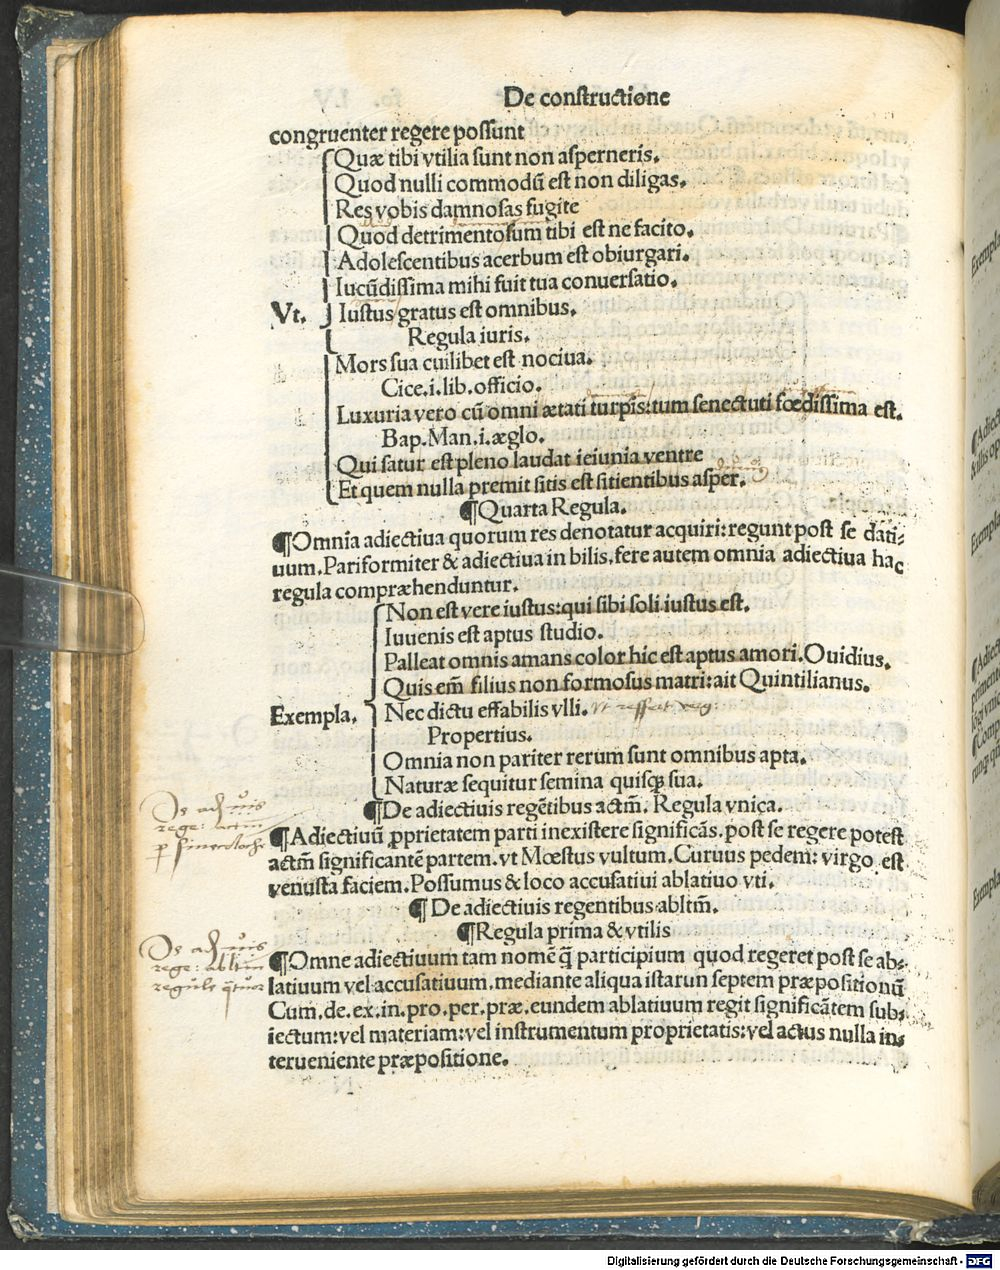 De constructione
congruenter regere possunt
Quæ tibi vtilia sunt non asperneris.
Quod nulli commodū est non diligas.
Res vobis damnosas fugite
Quod detrimentosum tibi est ne facito.
Adolescentibus acerbum est obiurgari.
Iucūdissima mihi fuit tua conuersatio.
Vt. Iustus gratus est omnibus.
Regula iuris.
Mors sua cuilibet est nociua.
Cice.i.lib.officio.
Luxuria vero cū omni ætati turpis:tum senectuti fœdissima est.
Bap.Man.i.æglo.
Qui satur est pleno laudat ieiunia ventre
Et quem nulla premit sitis est sitientibus asper.
¶Quarta Regula.
¶Omnia adiectiua quorum res denotatur acquiri:regunt post se dati-
uum.Pariformiter & adiectiua in bilis.fere autem omnia adiectiua hac
regula compræhenduntur.
Non est vere iustus:qui sibi soli iustus est.
Iuuenis est aptus studio.
Palleat omnis amans color hic est aptus amori.Ouidius.
Quis em̄ filius non formosus matri:ait Quintilianus.
Exempla. Nec dictu effabilis vlli.
Propertius.
Omnia non pariter rerum sunt omnibus apta.
Naturæ sequitur semina quisqꝫ sua.
¶De adiectiuis regētibus actm̄. Regula vnica.
¶Adiectiuū ꝓprietatem parti inexistere significās.post se regere potest
actm̄ significantē partem.vt Mœstus vultum.Curuus pedem: virgo est
venusta faciem.Possumus & loco accusatiui ablatiuo vti.
¶De adiectiuis regentibus abltm̄.
¶Regula prima & vtilis
¶Omne adiectiuum tam nomē q̄ participium quod regeret post se ab-
latiuum vel accusatiuum.mediante aliqua istarun septem præpositionū
Cum.de.ex.in.pro.per.præ.eundem ablatiuum regit significātem sub-
iectum:vel materiam:vel instrumentum proprietatis:vel actus nulla in-
terueniente præpositione.
Digitalisierung gefördert durch die Deutsche Forschungsgemeinschaft - DFG